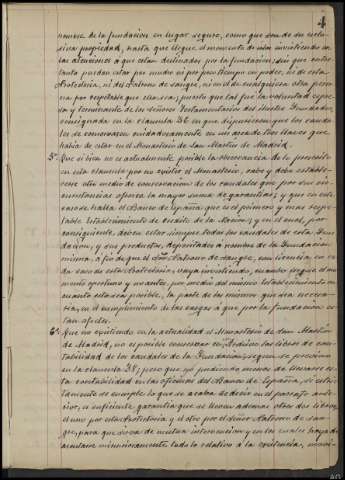 4
nombre de la fundacion en lugar seguro, como que son de su exclu-
siva propiedad, hasta que llegue el momento de irlos invirtiendo en
las atenciones á que estan destinados por la fundacion; sin que entre
tanto puedan estar por modo ni por poco tiempo en poder, ni de esta
Protectoria, ni del Patrono de sangre, ni en el de cualquiera otra perso-
na por respetable que ella sea; puesto que tal fué la voluntad expre-
sa y terminante de los señores Testamentarios del ilustre Fundador,
consignada en la clausula 36 en que dispusieron que los cauda-
les se conservasen cuidadosamente en un arca de tres llaves que
habia de estar en el Monasterio de San Martin de Madrid.
5º Que si bien no es actualmente posible la observancia de lo prescrito
en esta clausula por no existir el Monasterio, cabe y debe estable-
cerse otro medio de conservacion de los caudales que por sus cir-
cunstancias ofrezca la mayor suma de garantias; y que en este
caso se halla el Banco de España, que es el primero y mas respe-
table Establecimiento de credito de la Nacion; y en el cual, por
consiguiente, deben estar siempre todos los caudales de esta Fun-
dacion, y sus productos, depositados á nombre de la Fundacion
misma, á fin de que el Sor Patrono de sangre, con licencia en ca-
da caso de esta Protectoria, vaya invirtiendo, cuando llegue el mo-
mento oportuno y no antes, por medio del mismo Establecimiento en
cuanto esto sea posible, la parte de los mismos que sea necesa-
ria, en el cumplimiento de las cargas á que por la fundacion es-
tan afectos.
6º Que no existiendo en la actualidad el Monasterio de San Martin
de Madrid, no es posible conservar en su Archivo los libros de con-
tabilidad de los caudales de la Fundacion, segun se previno
en la clausula 38; pero que no pudiendo menos de llevarse es-
ta contabilidad en las oficinas del Banco de España, si exac-
tamente se cumple lo que se acaba de decir en el presente ante-
rior, es suficiente garantia que se lleven ademas otros dos libros,
el uno por esta Protectoria y el otro por el Señor Patrono de san-
gre, para que sirva de mutua intervencion y en los cuales haya de
anotarse minuciosamente todo lo relativo á la existencia, movi-